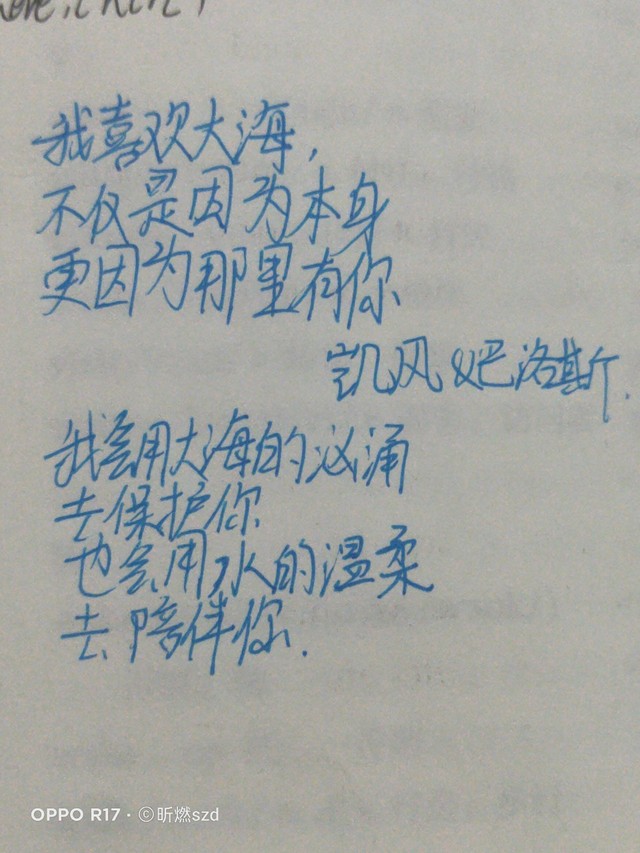 我喜欢大海,
不仅是因为本身
更因为那里有你
凯风&巴洛斯.
我会用大海的汹涌
去保护你
也会用水的温柔
去陪伴你.
OPPO R17 · ©昕燃szd